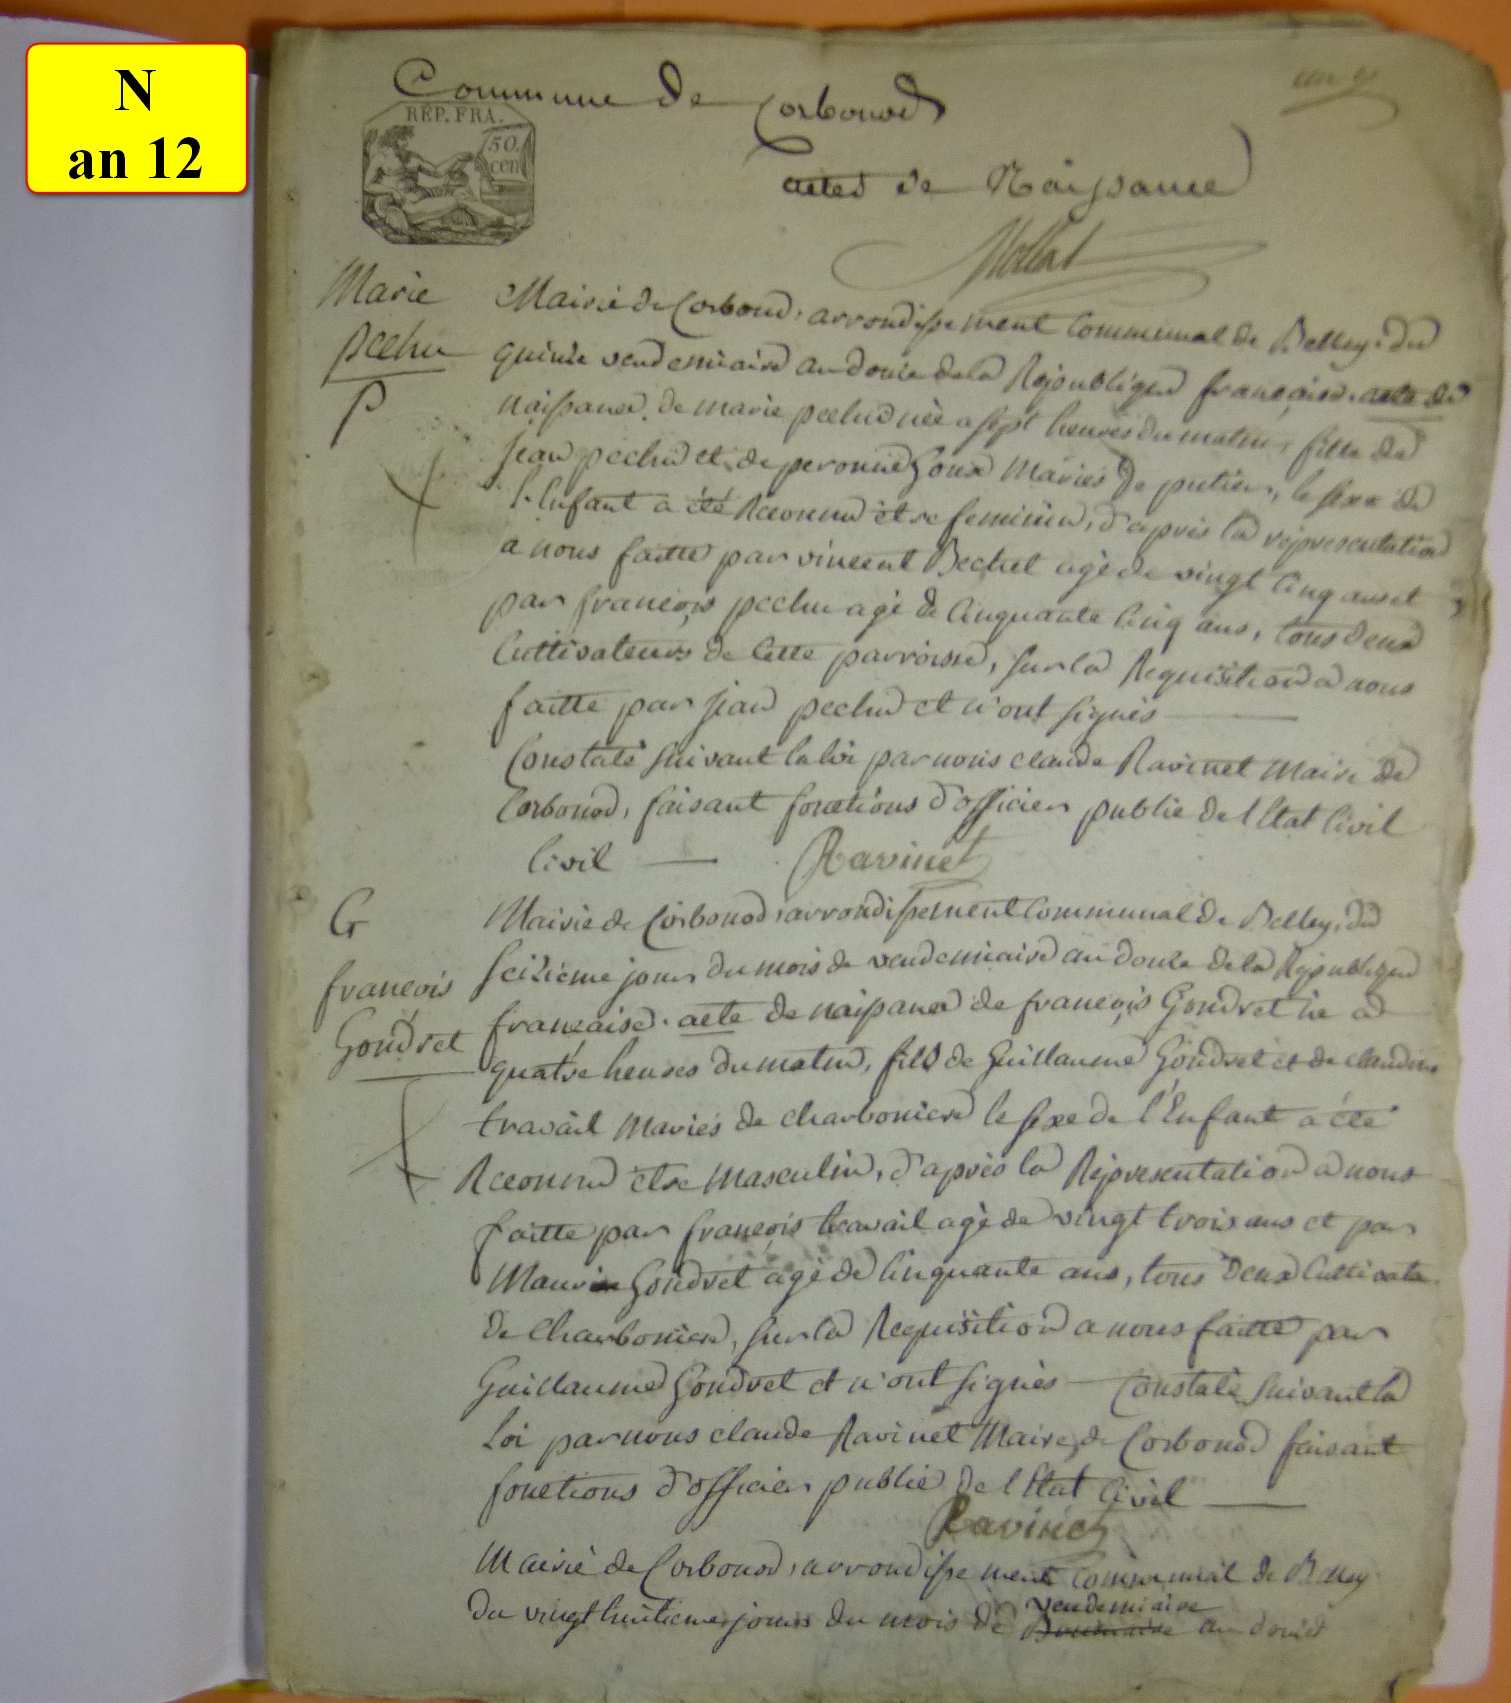 N
an 12
Commune de Corbonod
REP. FRA.
50.
cen
actes de Naissance
Marie
pechu
P
Mairie de Corbonod, arrondissement communal de Belley. du
quinze vendemiaire an douze de la Republique française. acte de
naissance de marie pechu née a sept heures du matin, fille de
jean pechu et de peronne goux Mariés de putier, le sexe de
l'Enfant a été Reconnu etre feminin, d'après la representation
a nous faitte par vincent Bechet agé de vingt cinq ans et
par françois pechu agé de cinquante cinq ans, tous deux
Cultivateurs de cette parroisse, sur la Requisition a nous
faitte par jean pechu et n'ont signés
Constaté suivant la loi par nous claude Ravinet Maire de
Corbonod, faisant fonctions d'officier public de l'Etat Civil
Civil Ravinet
G
françois
Gondret
Mairie de Corbonod, arrondissement Communal de Belley, du
seizième jour du mois de vendemiaire an douze de la Republique
française. acte de naissance de françois Gondret né a
quatre heures du matin, fils de Guillaume Gondret et de claudine
travail Mariés de charboniere le sexe de l'Enfant a été
Reconnu etre Masculin, d'après la Representation a nous
faitte par françois travail agé de vingt trois ans et par
Maurice Gondret agé de Cinquante ans, tous deux Cultivate.
de Charboniere, sur la Requisition a nous faitte par
Guillaume Gondret et n'ont signés Constaté suivant la
Loi par nous claude Ravinet Maire de Corbonod faisant
fonctions d'officier public de l'Etat Civil
Ravinet
Mairie de Corbonod, arrondissement communal de Belley
du vingt huitieme jours du mois de vendemiaire Brumaire an douze